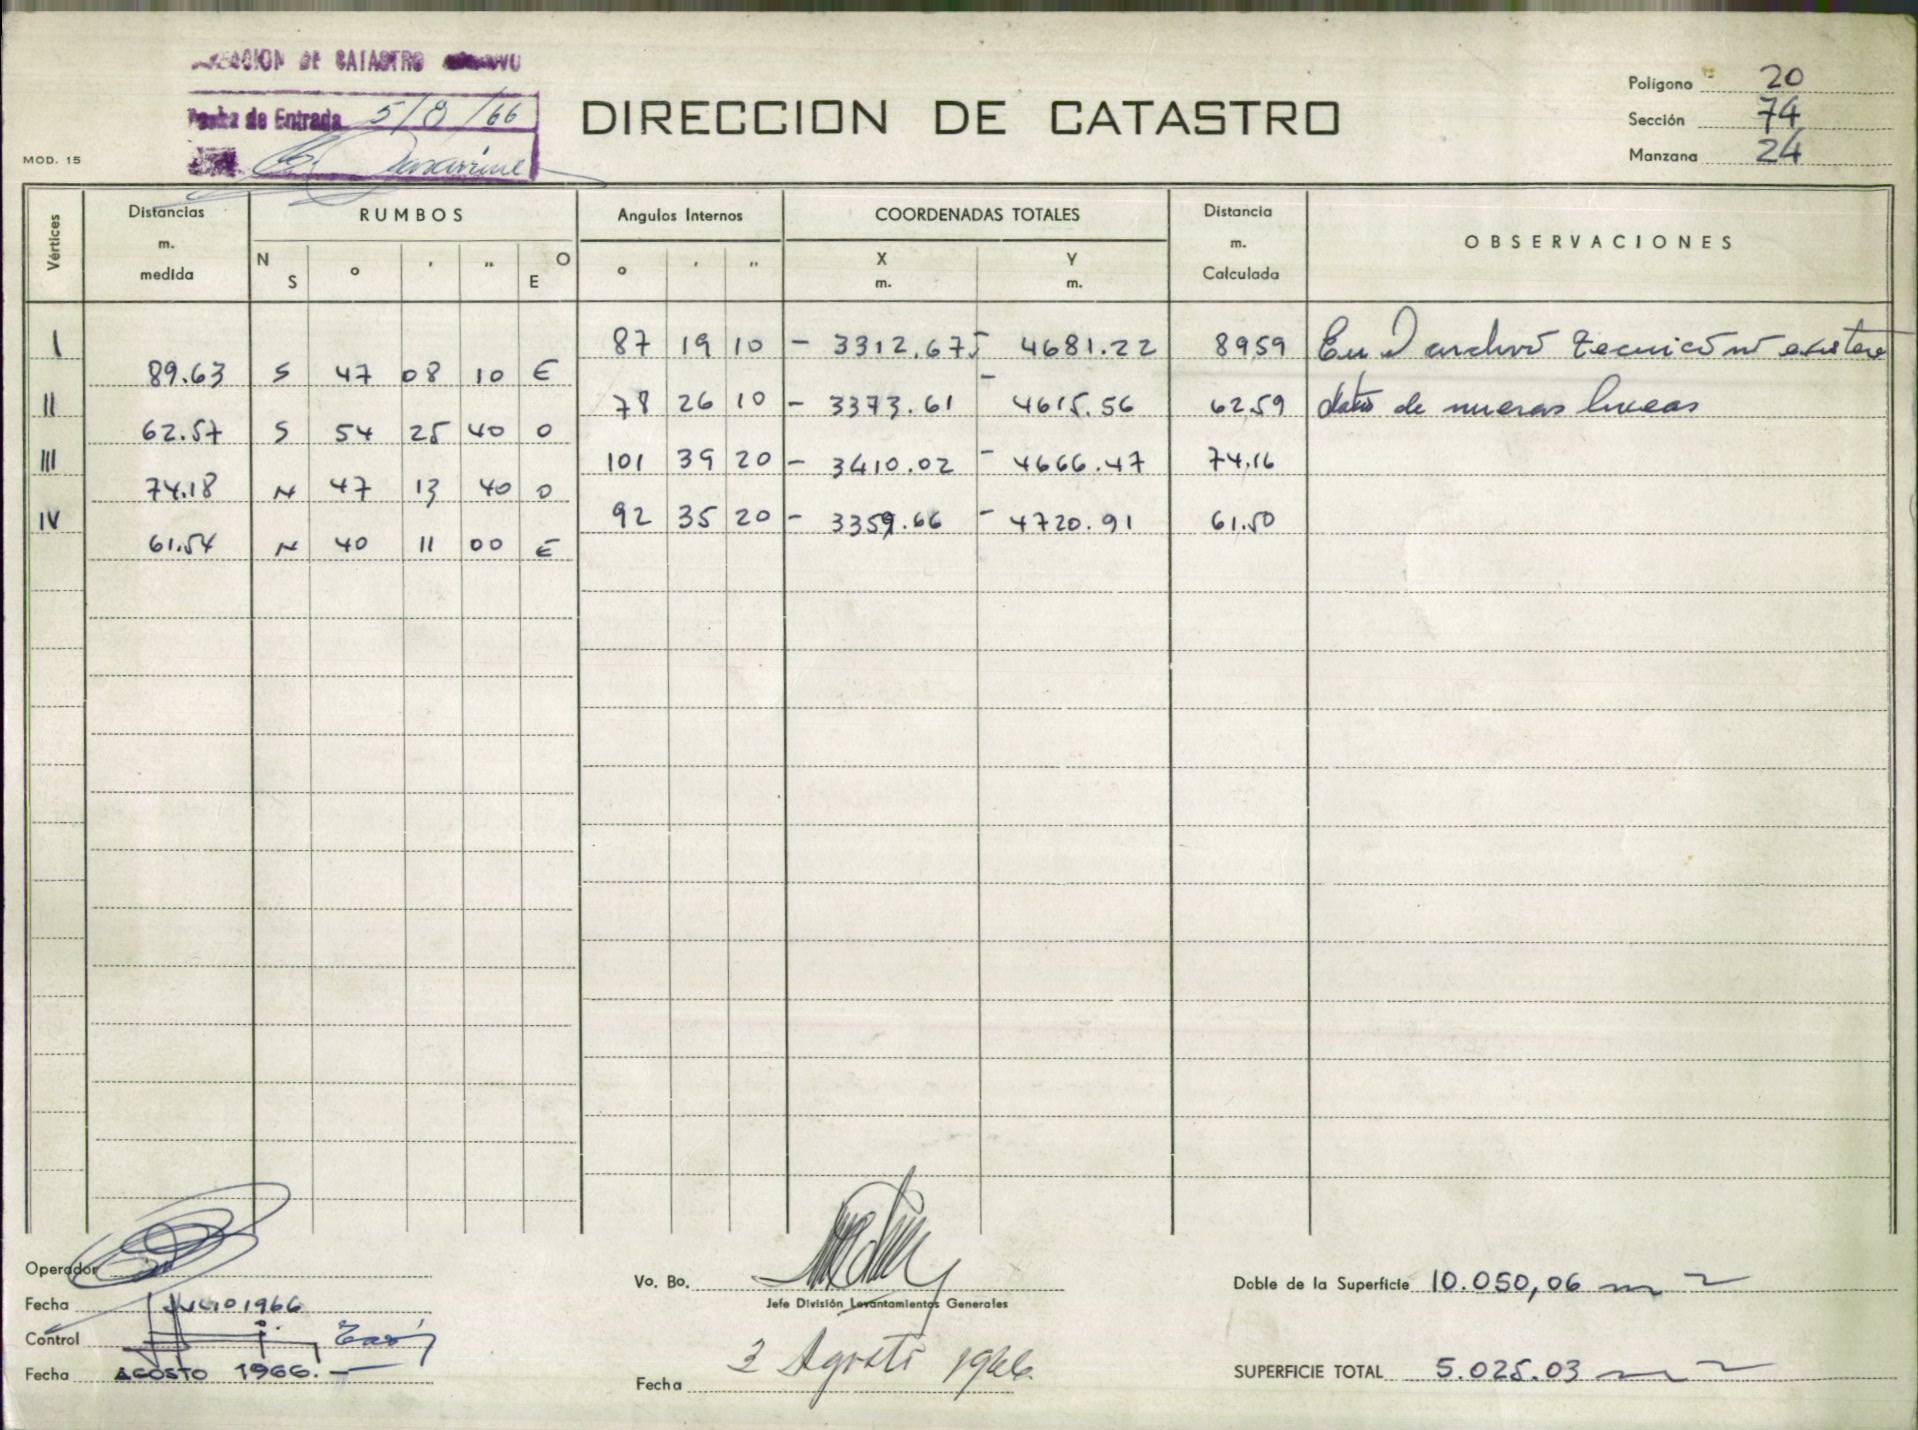 DIRECCION DE CATASTRO
Fecha de Entrada 5/8/66
DIRECCION DE CATASTRO
Polígono 20
Sección 74
Manzana 24
MOD. 15
Vértices
Distancias m. medida
RUMBOS
N S ° ' " O E
Angulos Internos
° ' "
COORDENADAS TOTALES
X m. Y m.
Distancia m. Calculada
OBSERVACIONES
I 87 19 10 - 3312.675 4681.22 8959 En archivo tecnico no existen
89.63 S 47 08 10 E
II 78 26 10 - 3373.61 - 4615.56 62.59 datos de nuevas lineas
62.57 S 54 25 40 O
III 101 39 20 - 3410.02 - 4666.47 74.16
74.18 N 47 13 40 O
IV 92 35 20 - 3359.66 - 4720.91 61.50
61.54 N 40 11 00 E
Operador
Fecha JULIO 1966
Control
Fecha AGOSTO 1966.-
Vo. Bo.
Jefe División Levantamientos Generales
Fecha 2 Agosto 1966
Doble de la Superficie 10.050,06 m2
SUPERFICIE TOTAL 5.025.03 m2